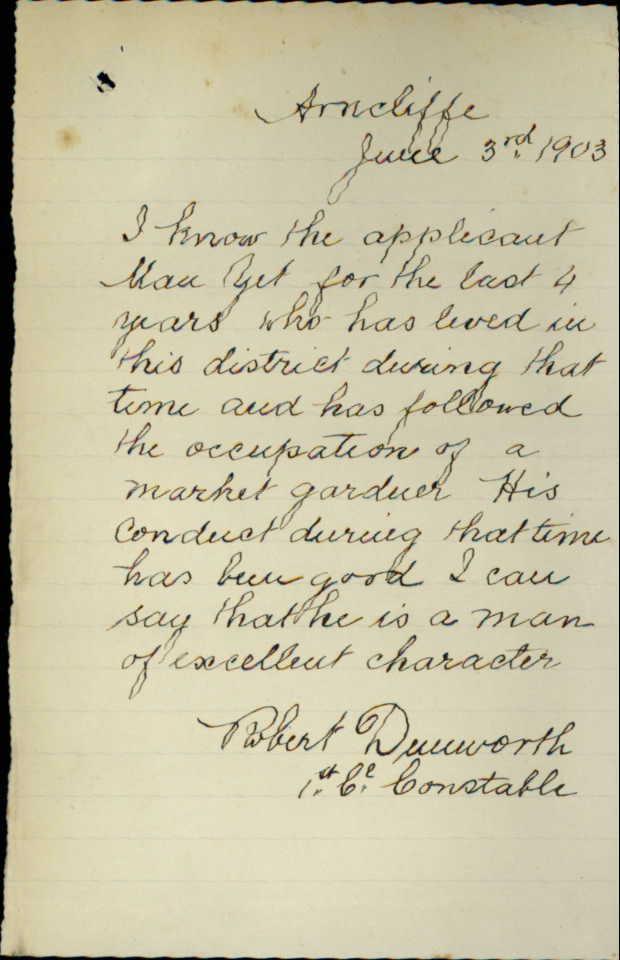 Arncliffe
June 3rd. 1903
I know the applicant
Mau Yet for the last 4
years who has lived in
this district during that
time and has followed
the occupation of a
market gardner His
Conduct during that time
has been good I can
say that he is a man
of excellent character
Robert Dunworth
1st. Cl. Constable